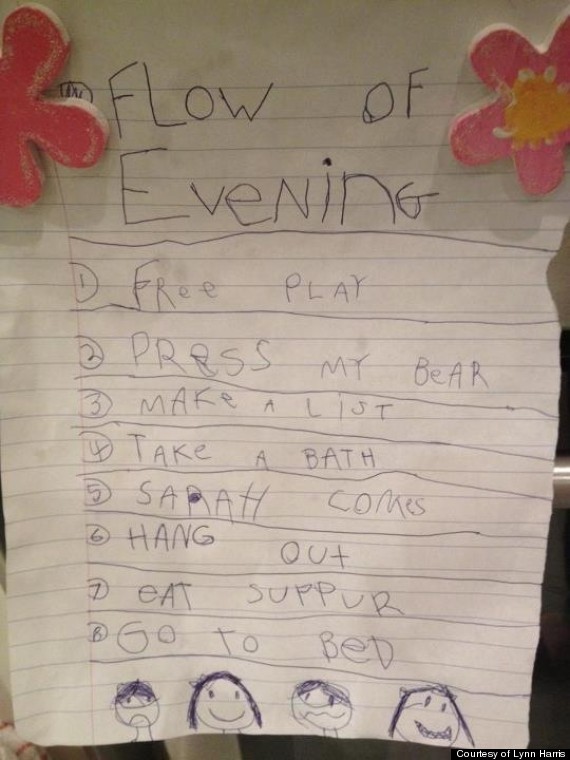 FLOW OF
EVENING
1 FRee PLAY
2 PRESS MY BeAR
3 MAKe A LiST
4 TAKe A BATH
5 SARAH COMes
6 HANG OUt
7 eAT SUPPUR
8 GO TO BeD
Courtesy of Lynn Harris